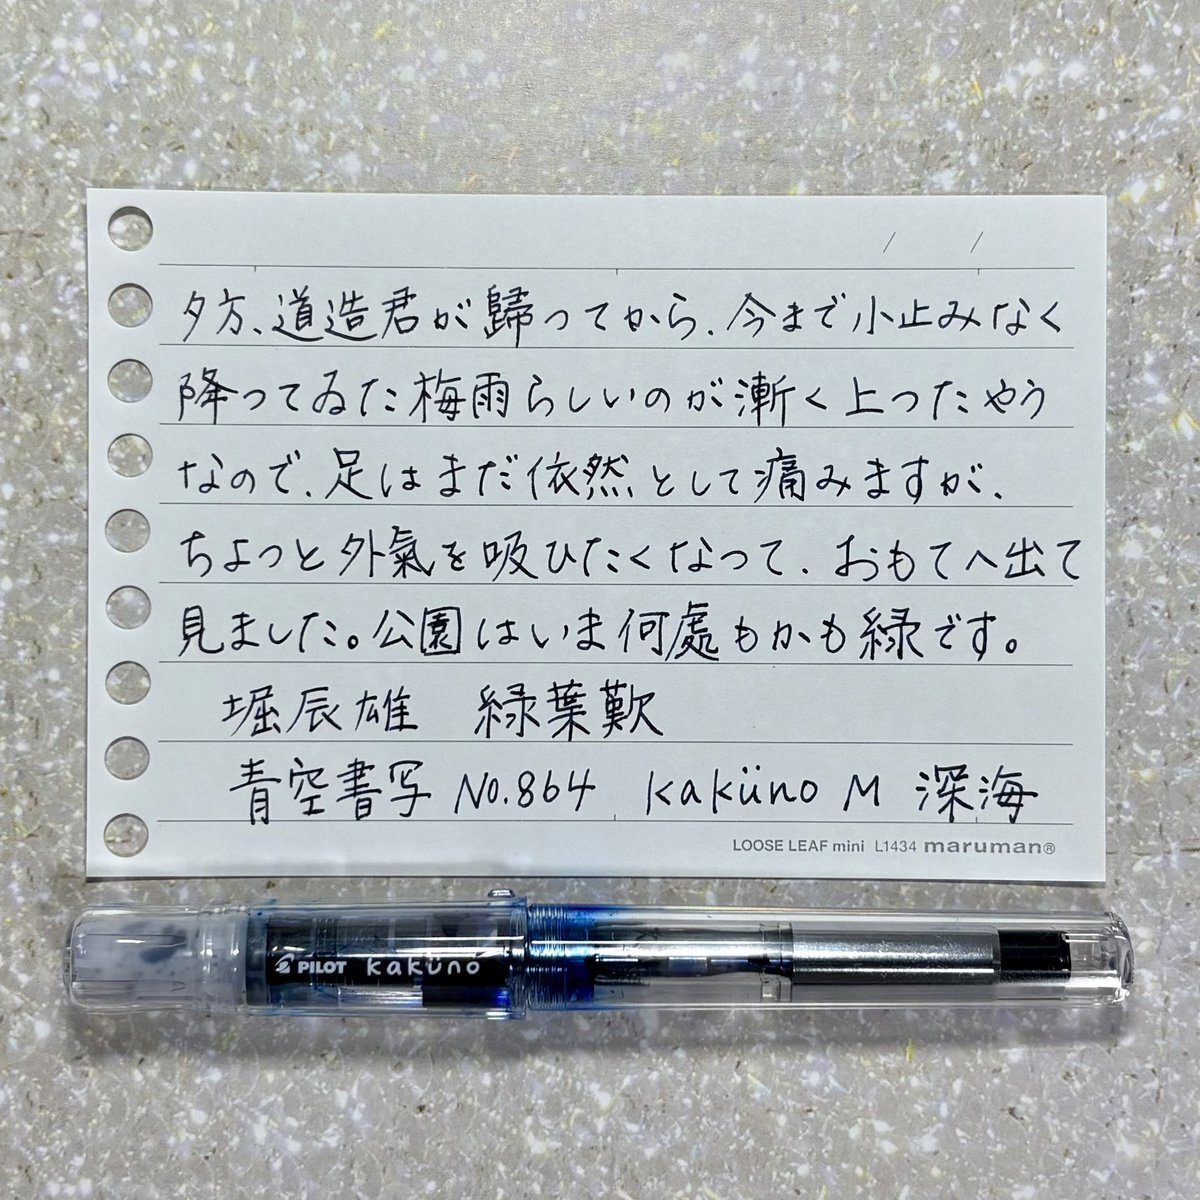 / /
夕方、道造君が歸つてから、今まで小止みなく
降つてゐた梅雨らしいのが漸く上つたやう
なので、足はまだ依然として痛みますが、
ちよつと外氣を吸ひたくなつて、おもてへ出て
見ました。公園はいま何處もかも緑です。
堀辰雄 緑葉歎
青空書写 No.864 kaküno M 深海
LOOSE LEAF mini L1434 maruman®
PILOT kaküno